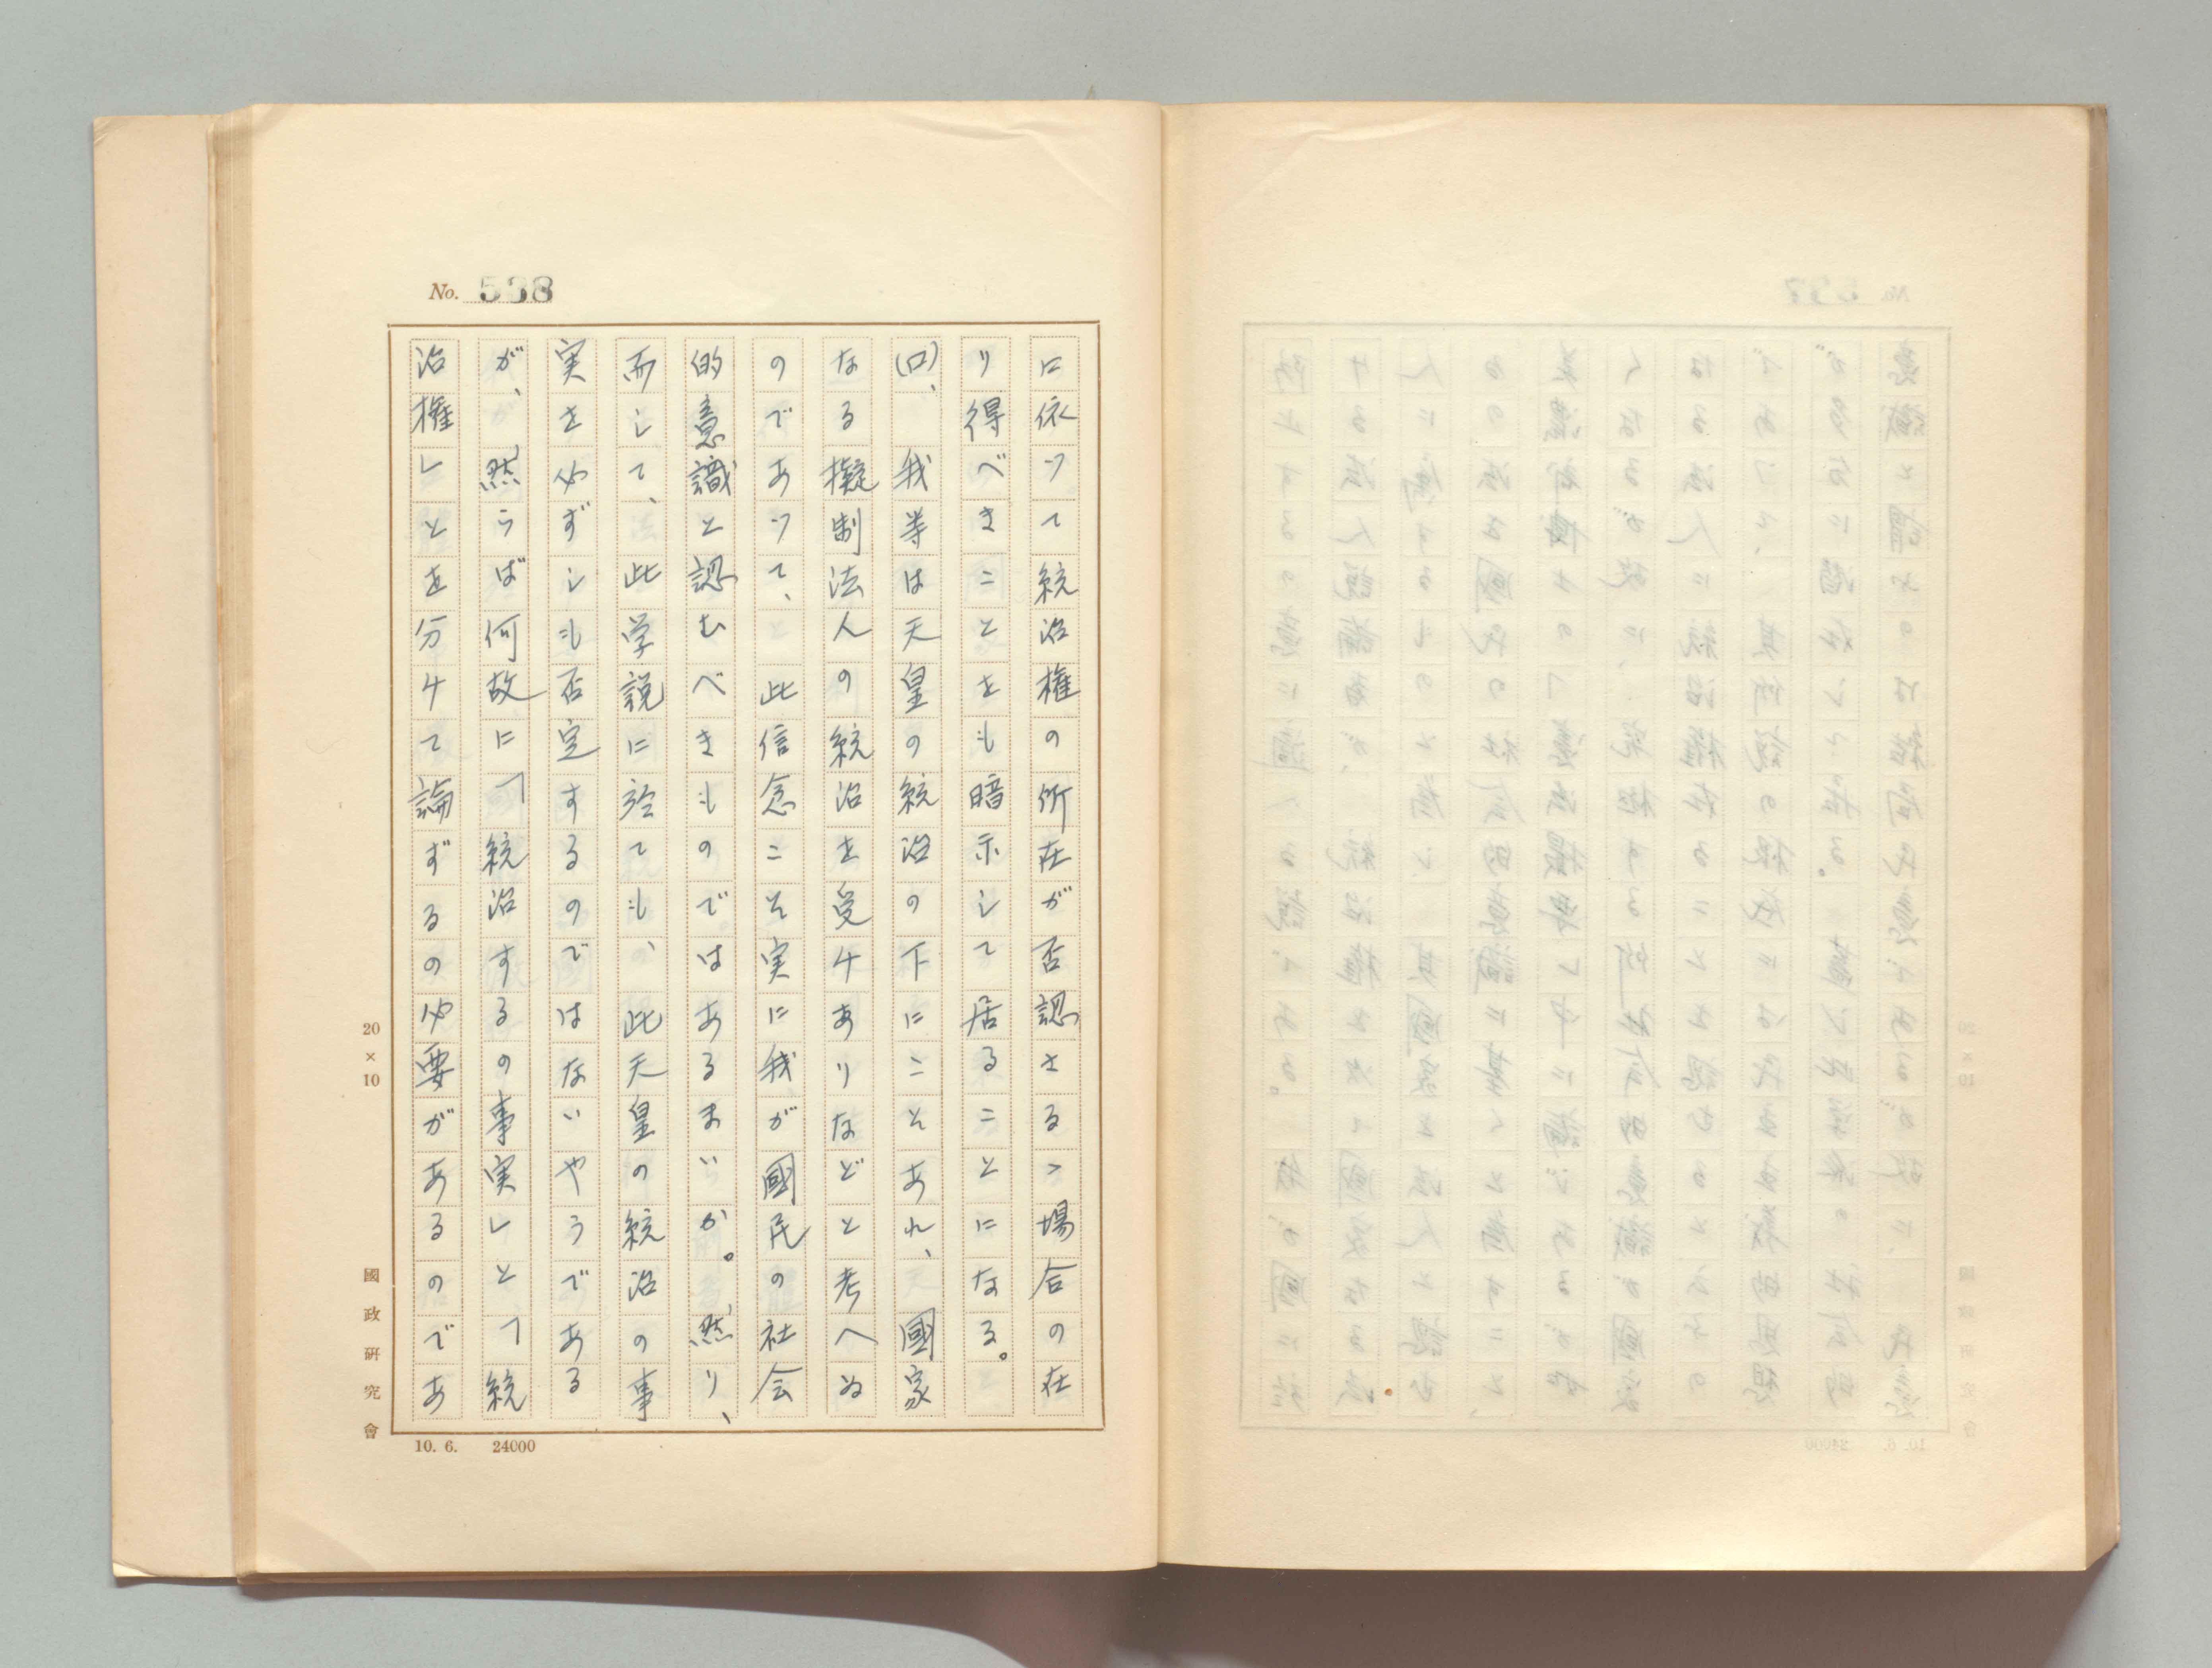 No. 538
に依つて統治権の所在が否認さるゝ場合の在
り得べきことをも暗示して居ることになる。
(ロ)、我等は天皇の統治の下にこそあれ、國家
なる擬制法人の統治を受けありなどと考へぬ
のであつて、此信念こそ実に我が國民の社会
的意識と認むべきものではあるまいか。然り、
而して、此学説に於ても、此天皇の統治の事
実を必ずしも否定するのではないやうである
が、然らば何故に「統治するの事実」と「統
治権」とを分けて論ずるの必要があるのであ
20×10
國政研究會
10. 6. 24000